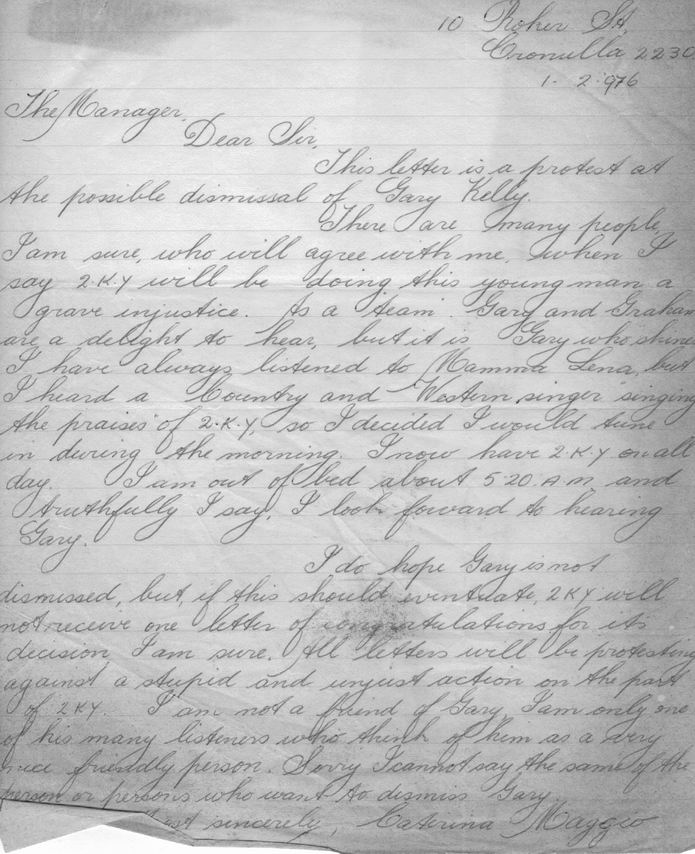 10 Roker St,
Cronulla 2230
1. 2.976
The Manager,
Dear Sir,
This letter is a protest at
the possible dismissal of Gary Kelly.
There are many people,
I am sure, who will agree with me, when I
say 2.K.Y will be doing this young man a
grave injustice. As a "team". Gary and Graham
are a delight to hear, but it is Gary who shines
I have always listened to Mamma Lena, but
I heard a Country and Western singer "singing
the praises" of 2.K.Y, so I decided I would tune
in during the morning. I now have 2.K.Y on all
day. I am out of bed about 5.20 A.M, and
truthfully I say, I look forward to hearing
Gary.
I do hope Gary is not
dismissed, but, if this should eventuate, 2KY will
not receive one letter of congratulations for its
decision I am sure. All letters will be protesting
against a stupid and unjust action on the part
of 2KY. I am not a friend of Gary, I am only one
of his many listeners who think of him as a very
nice friendly person. Sorry I cannot say the same of the
person or persons who want to dismiss Gary
sincerely, Caterina Maggio